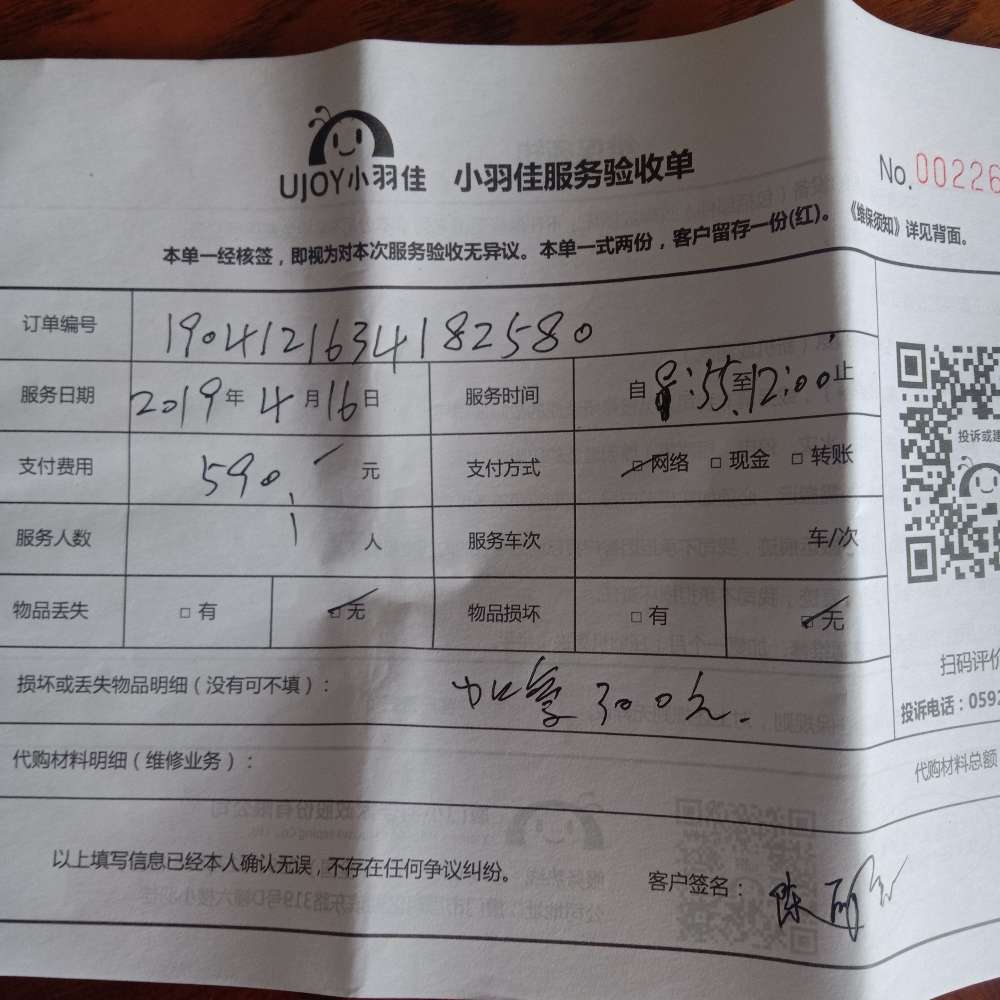 UJOY小羽佳 小羽佳服务验收单
No.00226
本单一经核签，即视为对本次服务验收无异议。本单一式两份，客户留存一份(红)。《维保须知》详见背面。
订单编号 1904121634182580
服务日期 2019年4月16日 服务时间 自8:55至12:00止
支付费用 590. 元 支付方式 □网络 □现金 □转账
服务人数 1 人 服务车次 车/次
物品丢失 □有 □无 物品损坏 □有 □无
投诉或建
扫码评价
投诉电话：0592
损坏或丢失物品明细（没有可不填）： 300元.
代购材料明细（维修业务）：
代购材料总额
以上填写信息已经本人确认无误，不存在任何争议纠纷。
客户签名：陈丽